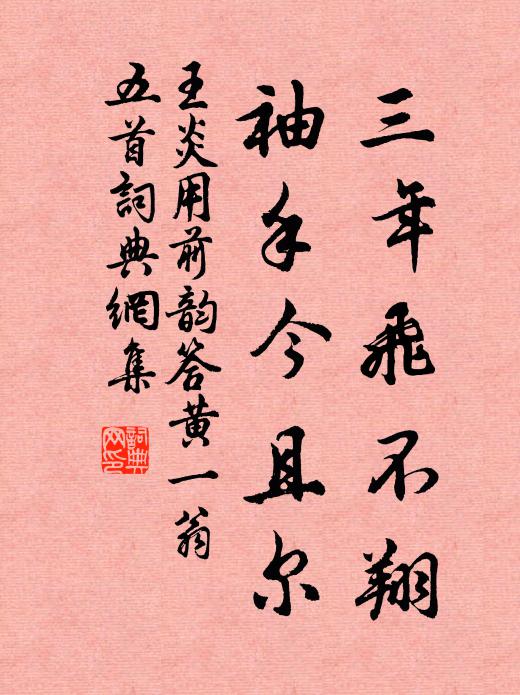 三年飛不翔
袖手今且尔
王炎用前韵答黄一翁
五首詞典網集
詞典
网印